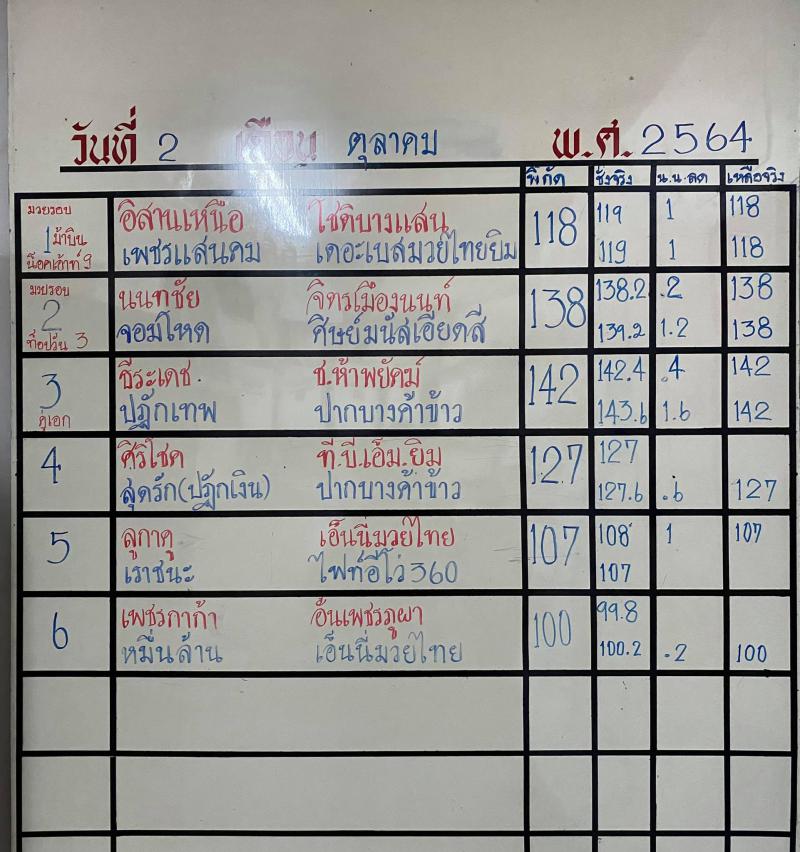 วันที่ 2 เดือน ตุลาคม พ.ศ. 2564
พิกัด ชั่งจริง น.น.ลด เหลือจริง
มวยรอบ อิสานเหนือ โชติบางแสน 118 119 1 118
1 ม้าบิน
น็อคเอ้าท์ 9 เพชรแสนคม เดอะเบสมวยไทยยิม 119 1 118
มวยรอบ นนทชัย จิตรเมืองนนท์ 138 138.2 .2 138
2
ท็อปวัน 3 จอมโหด ศิษย์มนัสเอียดสี 139.2 1.2 138
3 ธีระเดช. ช.ห้าพยัคฆ์ 142 142.4 .4 142
คู่เอก ปฏักเทพ ปากบางค้าข้าว 143.6 1.6 142
4 ศิริโชค ที.บี.เอ็ม.ยิม 127 127
สุดรัก(ปฏักเงิน) ปากบางค้าข้าว 127.6 .6 127
5 ลูกาดุ เอ็นนี่มวยไทย 107 108 1 107
เราชนะ ไฟท์อีโว่ 360 107
6 เพชรกาก้า อ้นเพชรภูผา 100 99.8
หมื่นล้าน เอ็นนี่มวยไทย 100.2 .2 100